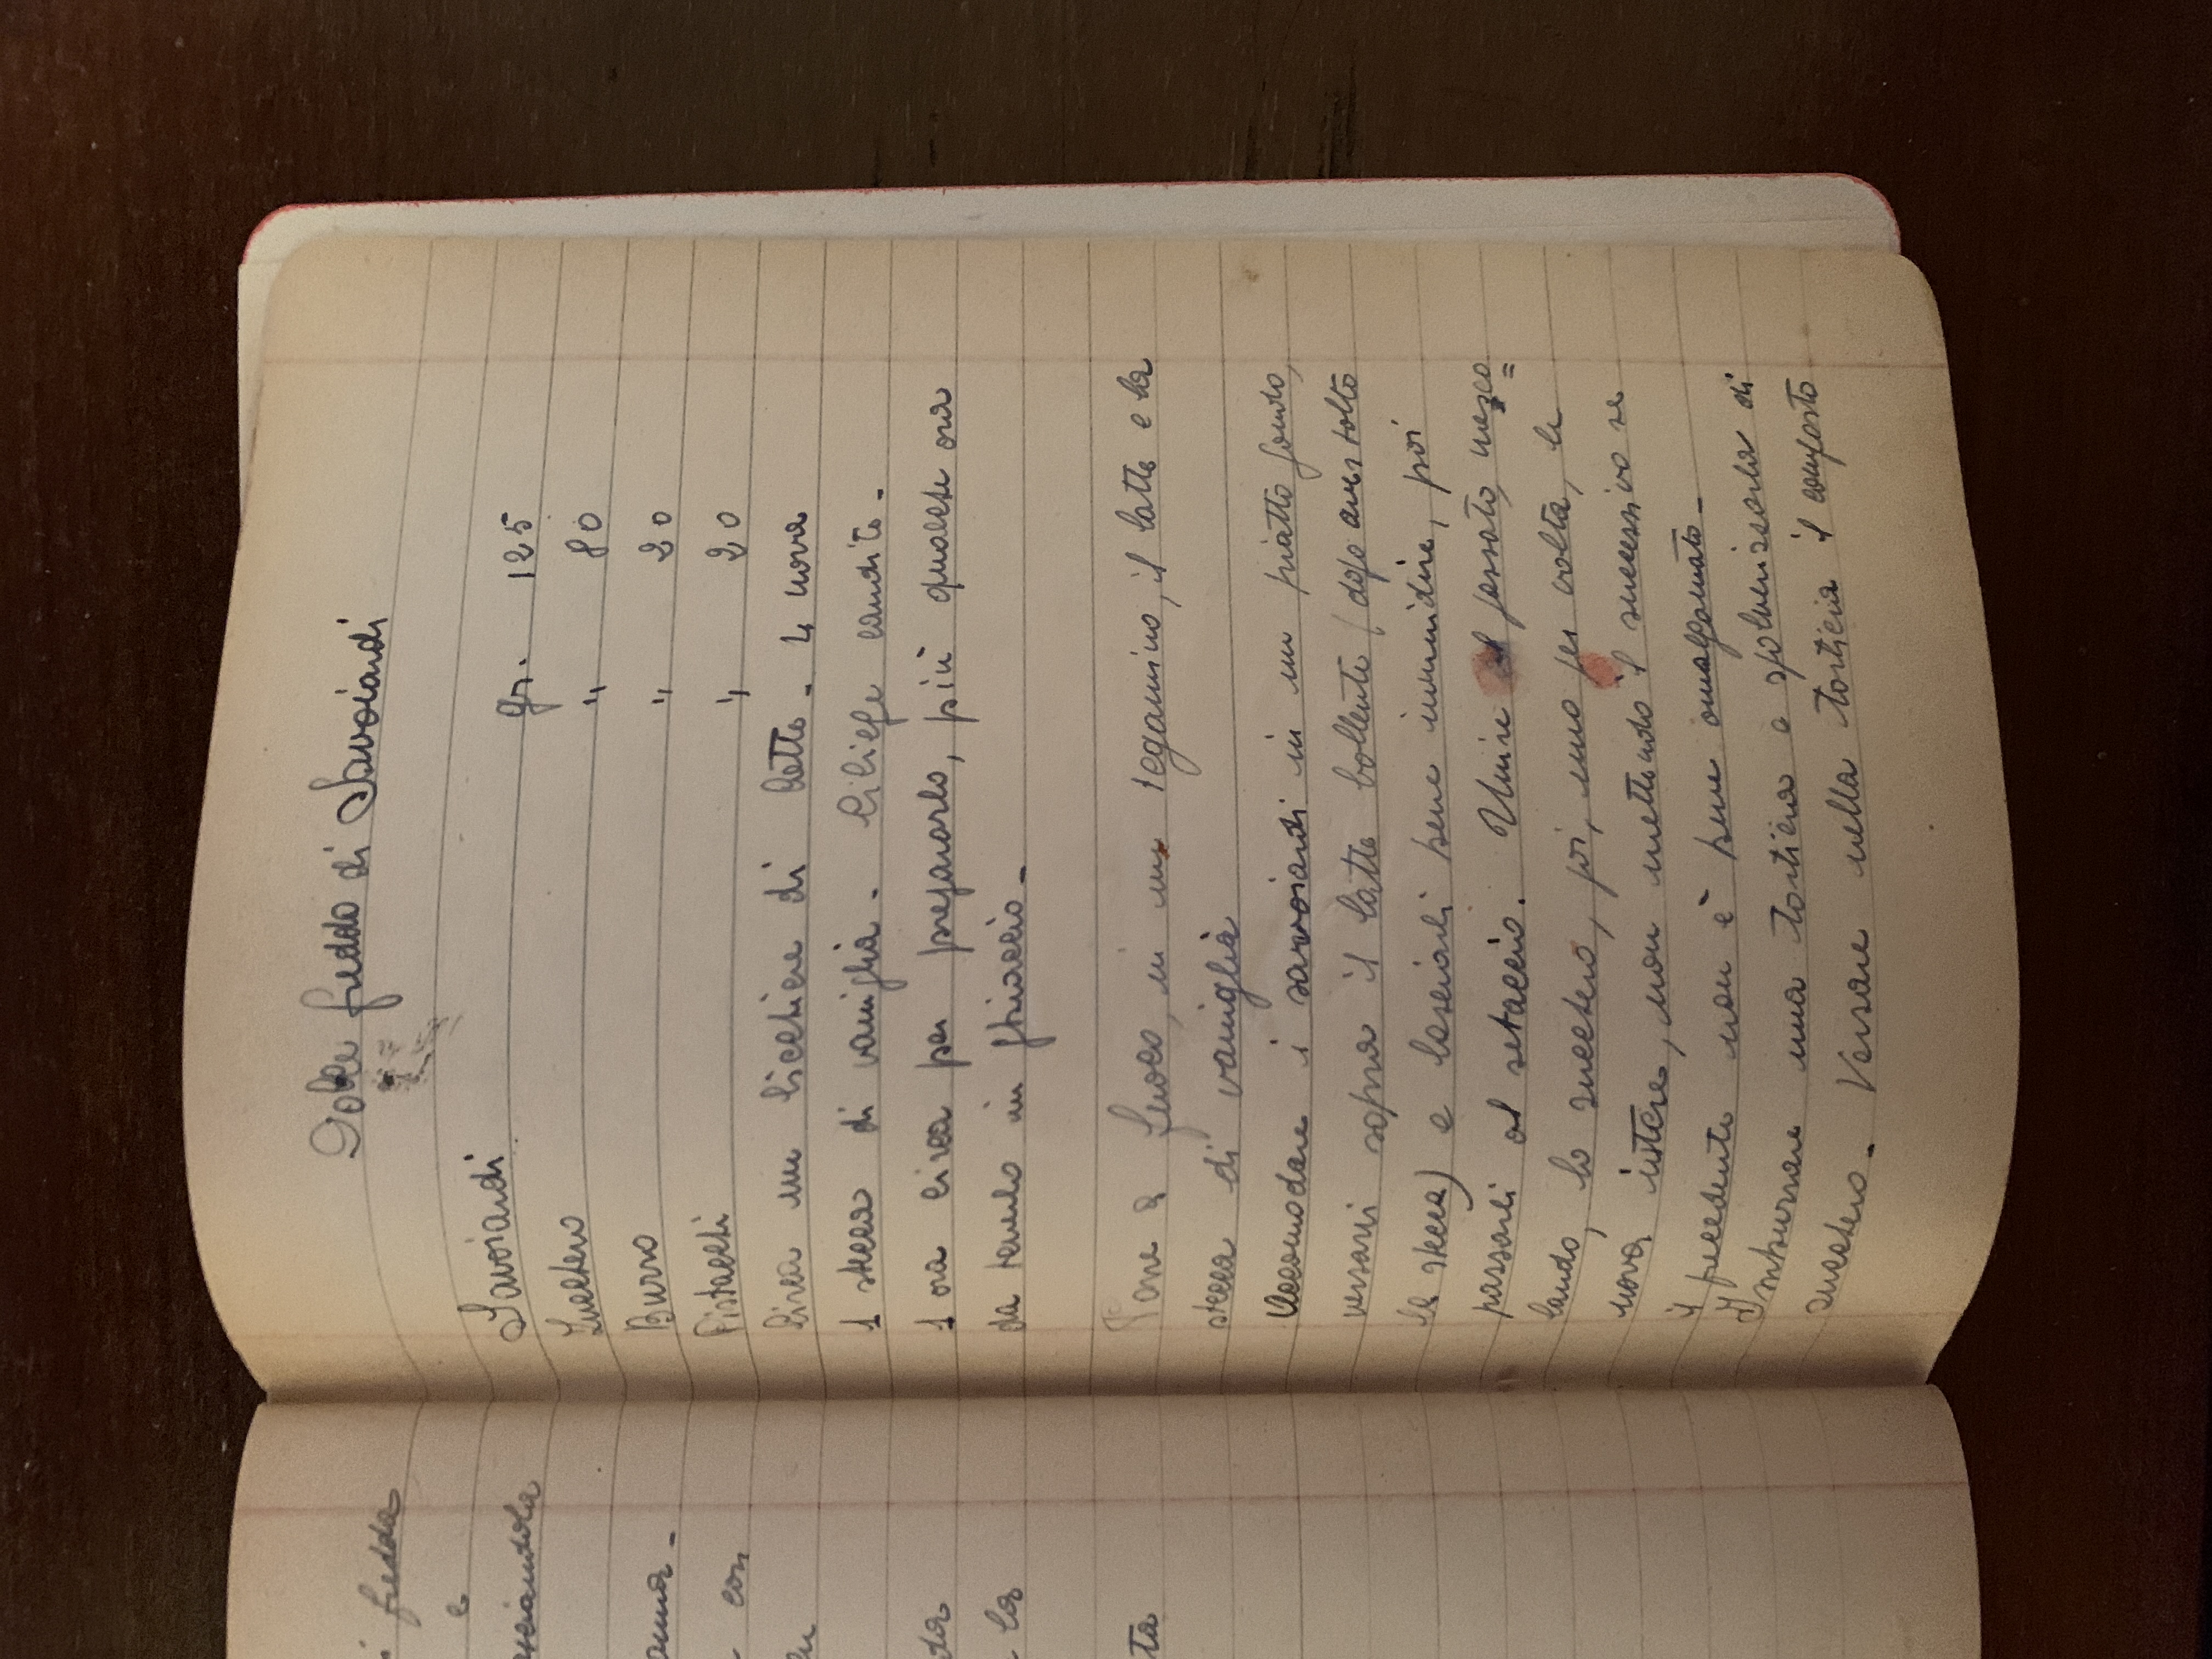 i fredda
e
asciandola
anna-
con
da
la
ta
Dolce freddo di Savoiardi
Savoiardi gr. 125
Zucchero " 80
Burro " 20
Pistacchi " 20
Circa un bicchiere di latte - 4 uova
1 stecca di vaniglia - Ciliege candite -
1 ora circa per prepararlo, più qualche ora
da tenerlo in ghiaccio -
Porre a fuoco, in un tegamino, il latte e la
stecca di vaniglia
Accomodare i savoiardi in un piatto fondo,
versarvi sopra il latte bollente (dopo aver tolto
la stecca) e lasciarli bene inumidire, poi
passarli al setaccio. Unire al passato, mesco=
lando, lo zucchero, poi, uno per volta, le
uova intere, non mettendo il successivo se
il precedente non è bene amalgamato -
Imburrare una tortiera e spolverizzarla di
zucchero - Versare nella tortiera il composto